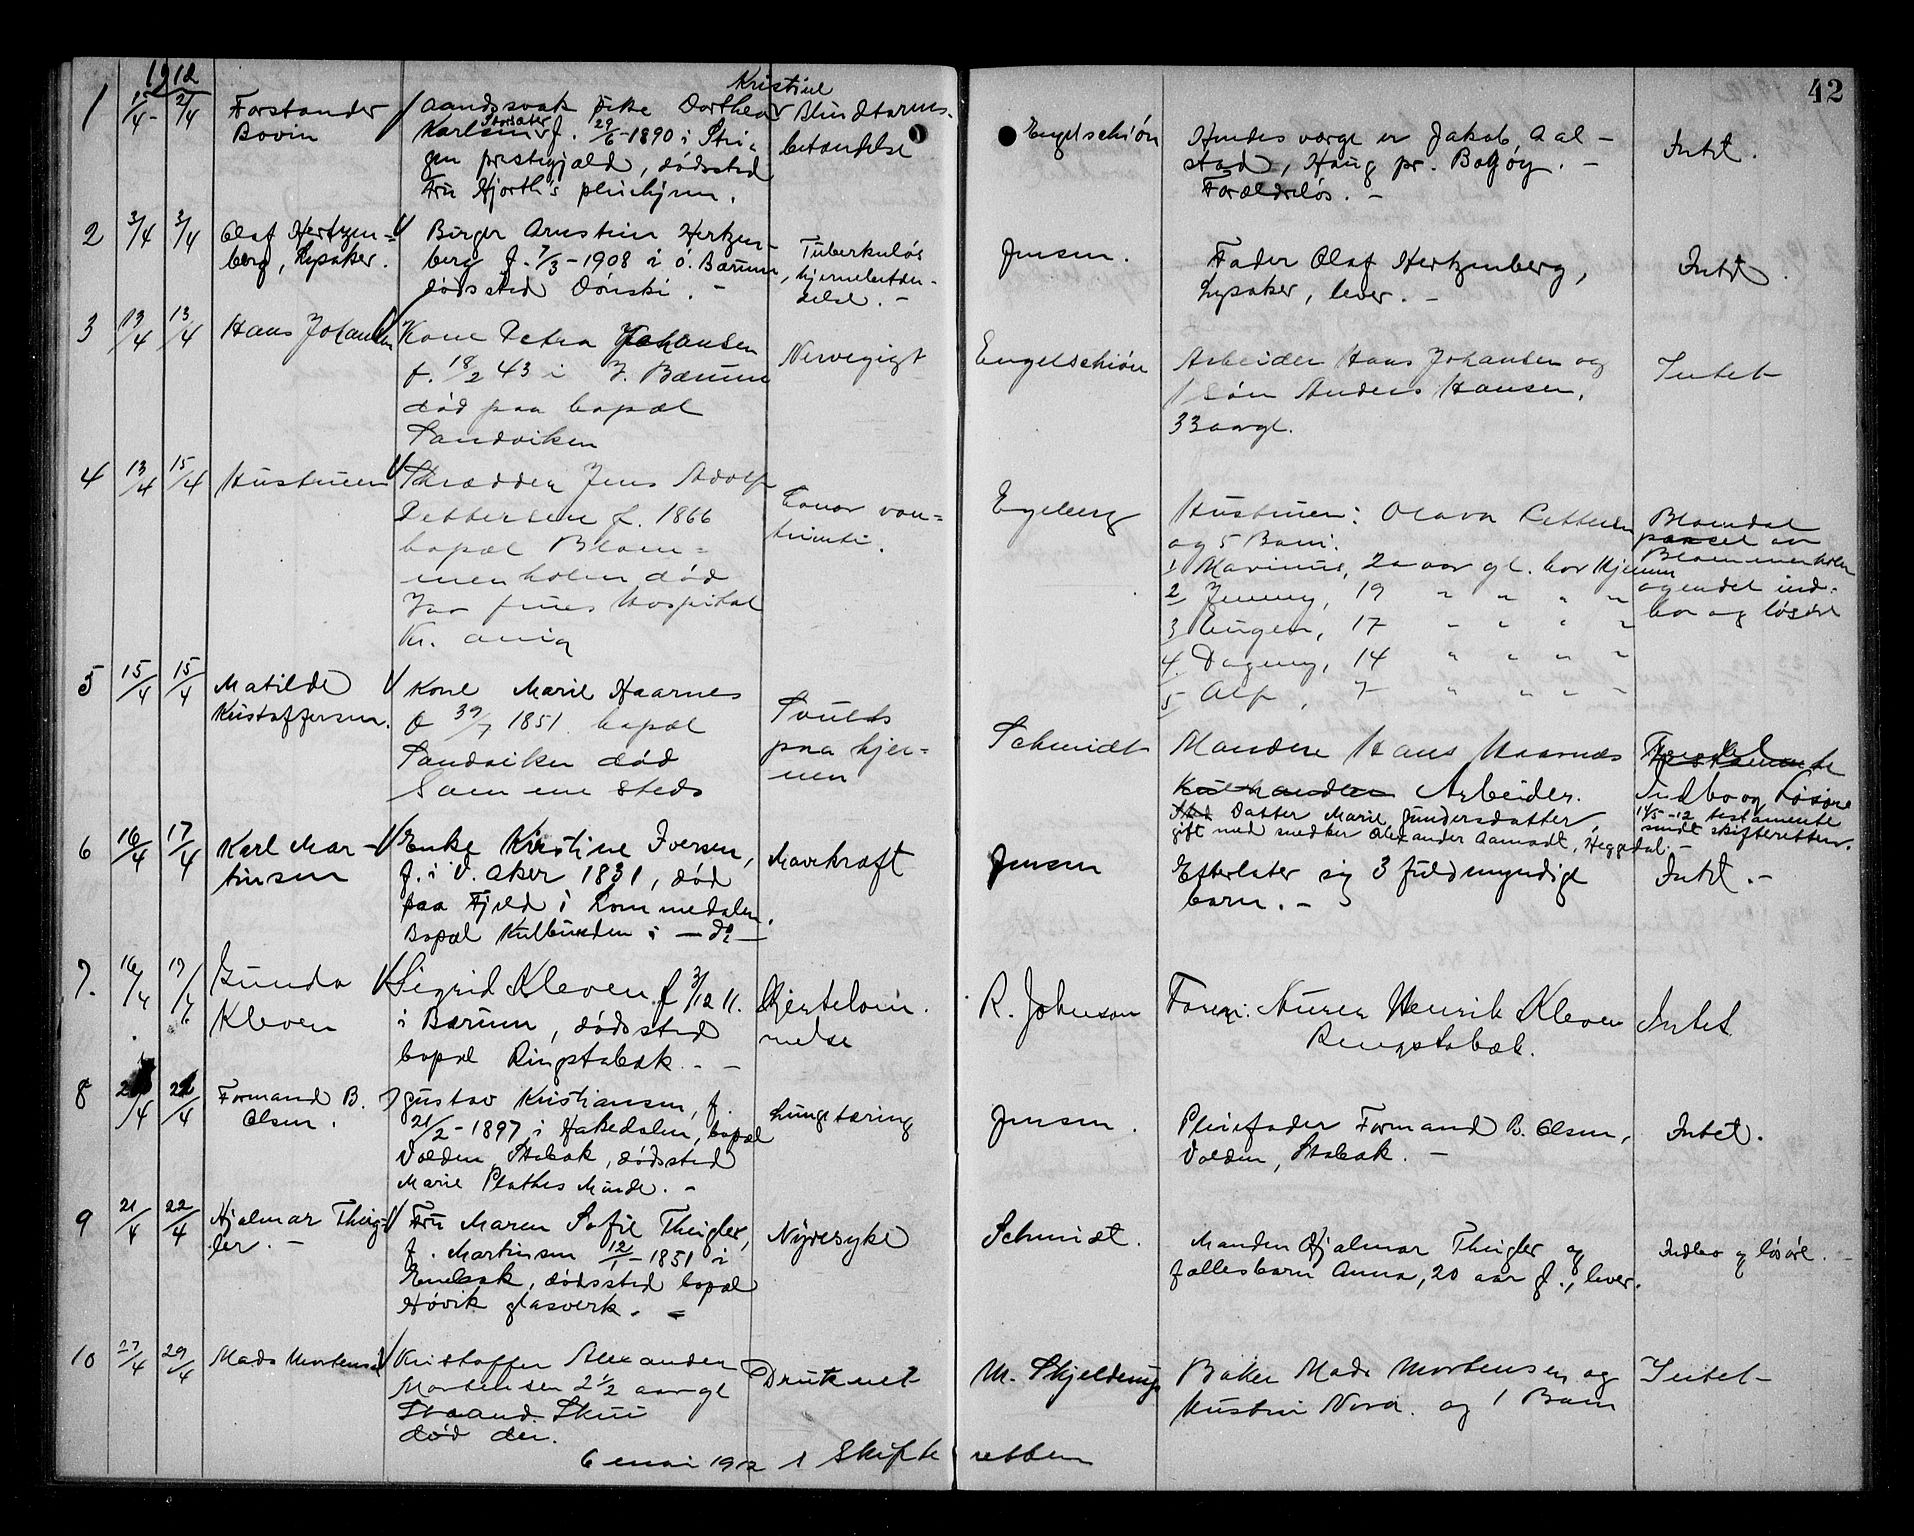 1912
42
1 1/4 - 2/4 Forstander Bovin
aandssvak pike Dorthea Kristine
Karlsen f. 29/6-1890 i
prestegjæld, dødssted
Fru Hjorth's pleiehjem.
Blindtarms-
betændelse
Engelschiøn
Hendes værge er Jakob Aal-
stad, Haug pr. Bogøy. -
Forældreløs. -
Intet.
2 3/4 3/4 Olaf Hertzen-
berg, Lysaker.
Birger Arnstein Hertzen-
berg f. 7/3-1908 i Ø. Bærum,
dødssted Dønski. -
Tuberkuløs
hjernebetæn-
delse. -
Jensen.
Fader Olaf Hertzenberg,
Lysaker, lever. -
Intet.
3 13/4 13/4 Hans Johansen
Kone Petra Johansen
f. 18/2 43 i V. Bærum
død paa bopæl
Sandviken
Nervegigt
Engelschiøn
Arbeider Hans Johansen og
1 søn Anders Hansen,
33 aar gl.
Intet
4 13/4 15/4 Hustruen
Skrædder Jens Adolf
Pettersen f. 1866
bopæl Blom-
menholm død
Vor frues Hospital
Kr. ania
Cancer ven-
triculi.
Engeberg
Hustruen: Olava Pettersen
og 5 Barn:
1 Marinus, 20 aar gl. bor Hjemme
2 Jenny, 19 " " " "
3 Eugen, 17 " " " "
4 Dagny, 14 " " " "
5 Alf, 7 " " " "
Blomdal
parcel av
Blommenholm
og endel ind-
bo og løsøre
5 15/4 15/4 Matilde
Kristoffersen.
Kone Marie Haarnes
f 30/7 1851. bopæl
Sandviken død
Sammesteds
Svulst
paa hjer-
nen
Schmidt
Manden Hans Haarnes
Arbeider.
Datter Marie Gundersdatter,
gift med snedker Alexander Aamodt, Heggedal. -
Indbo og Løsøre
14/5-12 testamente
sendt skifteretten.
6 16/4 17/4 Karl Mar-
tinsen
Enke Kristine Iversen,
f. i V. Aker 1831, død
paa Fjeld i Lommedalen.
Bopæl Kulbunden i - do -
Mavekræft
Jensen
Efterlater sig 3 fuldmyndige
barn. -
Intet. -
7. 16/4 17/4 Gunda
Kleven
Sigrid Kleven f 3/12 11.
i Bærum, dødssted
bopæl Ringstabæk. -
Hjertelam-
melse
R. Johnson
Foræ: Henrik Kleven
Ringstabæk.
Intet
8 22/4 Formand B.
Olsen.
Gustav Kristiansen, f.
21/2-1897 i Hakedalen, bopæl
Volden, Stabæk, dødssted
Marie Plathes Minde. -
Lungetæring
Jensen.
Pleiefader Formand B. Olsen,
Volden, Stabæk. -
Intet.
9 21/4 22/4 Hjalmar Theig-
ler. -
Fru Maren Sofie Theigler,
f. Martinsen 12/1-1851 i
Enebak, dødssted bopæl
Høvik glasverk. -
Nyresyke
Schmidt.
Manden Hjalmar Theigler og
fællesbarn Anna, 20 aar g., lever.
Indbo og løsøre. -
10 27/4 29/4 Mads Mortensen
Kristoffer Alexander
Mortensen 2 1/2 aar gl
Braand. Skui
død der.
Druknet
M. Skjelderup
Baker Mads Mortensen og
Hustru Nora. og 1 Barn
Intet
6 mai 1912 1 Skifteretten